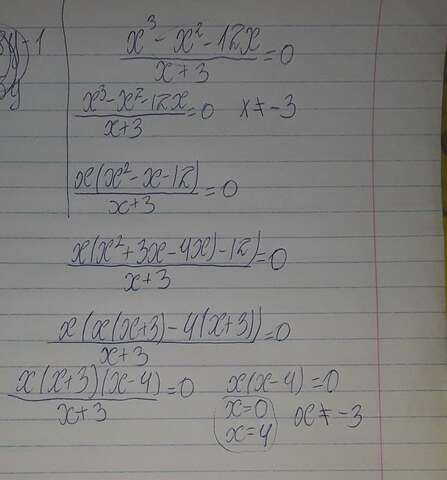 x³ - x² - 12x / x + 3 = 0
x³ - x² - 12x / x + 3 = 0 x ≠ -3
x(x² - x - 12) / x + 3 = 0
x(x² + 3x - 4x) - 12) / x + 3 = 0
x(x(x+3) - 4(x+3)) / x + 3 = 0
x(x+3)(x-4) / x + 3 = 0 x(x-4) = 0
x = 0 x ≠ -3
x = 4